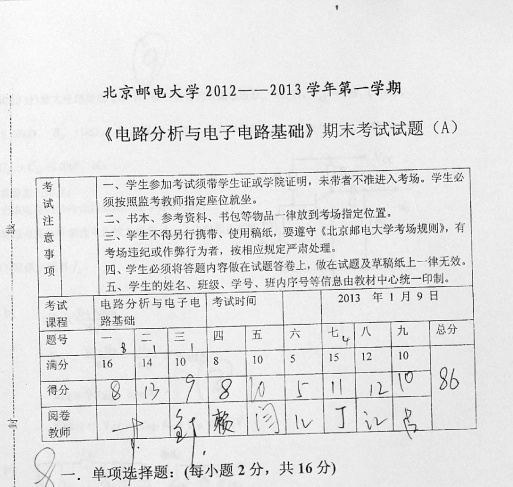 北京邮电大学 2012——2013 学年第一学期
《电路分析与电子电路基础》期末考试试题（A）
考试注意事项
一、学生参加考试须带学生证或学院证明，未带者不准进入考场。学生必
须按照监考教师指定座位就坐。
二、书本、参考资料、书包等物品一律放到考场指定位置。
三、学生不得另行携带、使用稿纸，要遵守《北京邮电大学考场规则》，有
考场违纪或作弊行为者，按相应规定严肃处理。
四、学生必须将答题内容做在试题答卷上，做在试题及草稿纸上一律无效。
五、学生的姓名、班级、学号、班内序号等信息由教材中心统一印制。
考试 电路分析与电子电 考试时间 2013 年 1 月 9 日
课程 路基础
题号 一 二 三 四 五 六 七 八 九 总分
8 1 1 4
满分 16 14 10 8 10 5 15 12 10
得分 8 13 9 8 10 5 11 12 10 86
阅卷 赖 闫 丁 江
教师
封
8
一．单项选择题：(每小题 2 分，共 16 分)